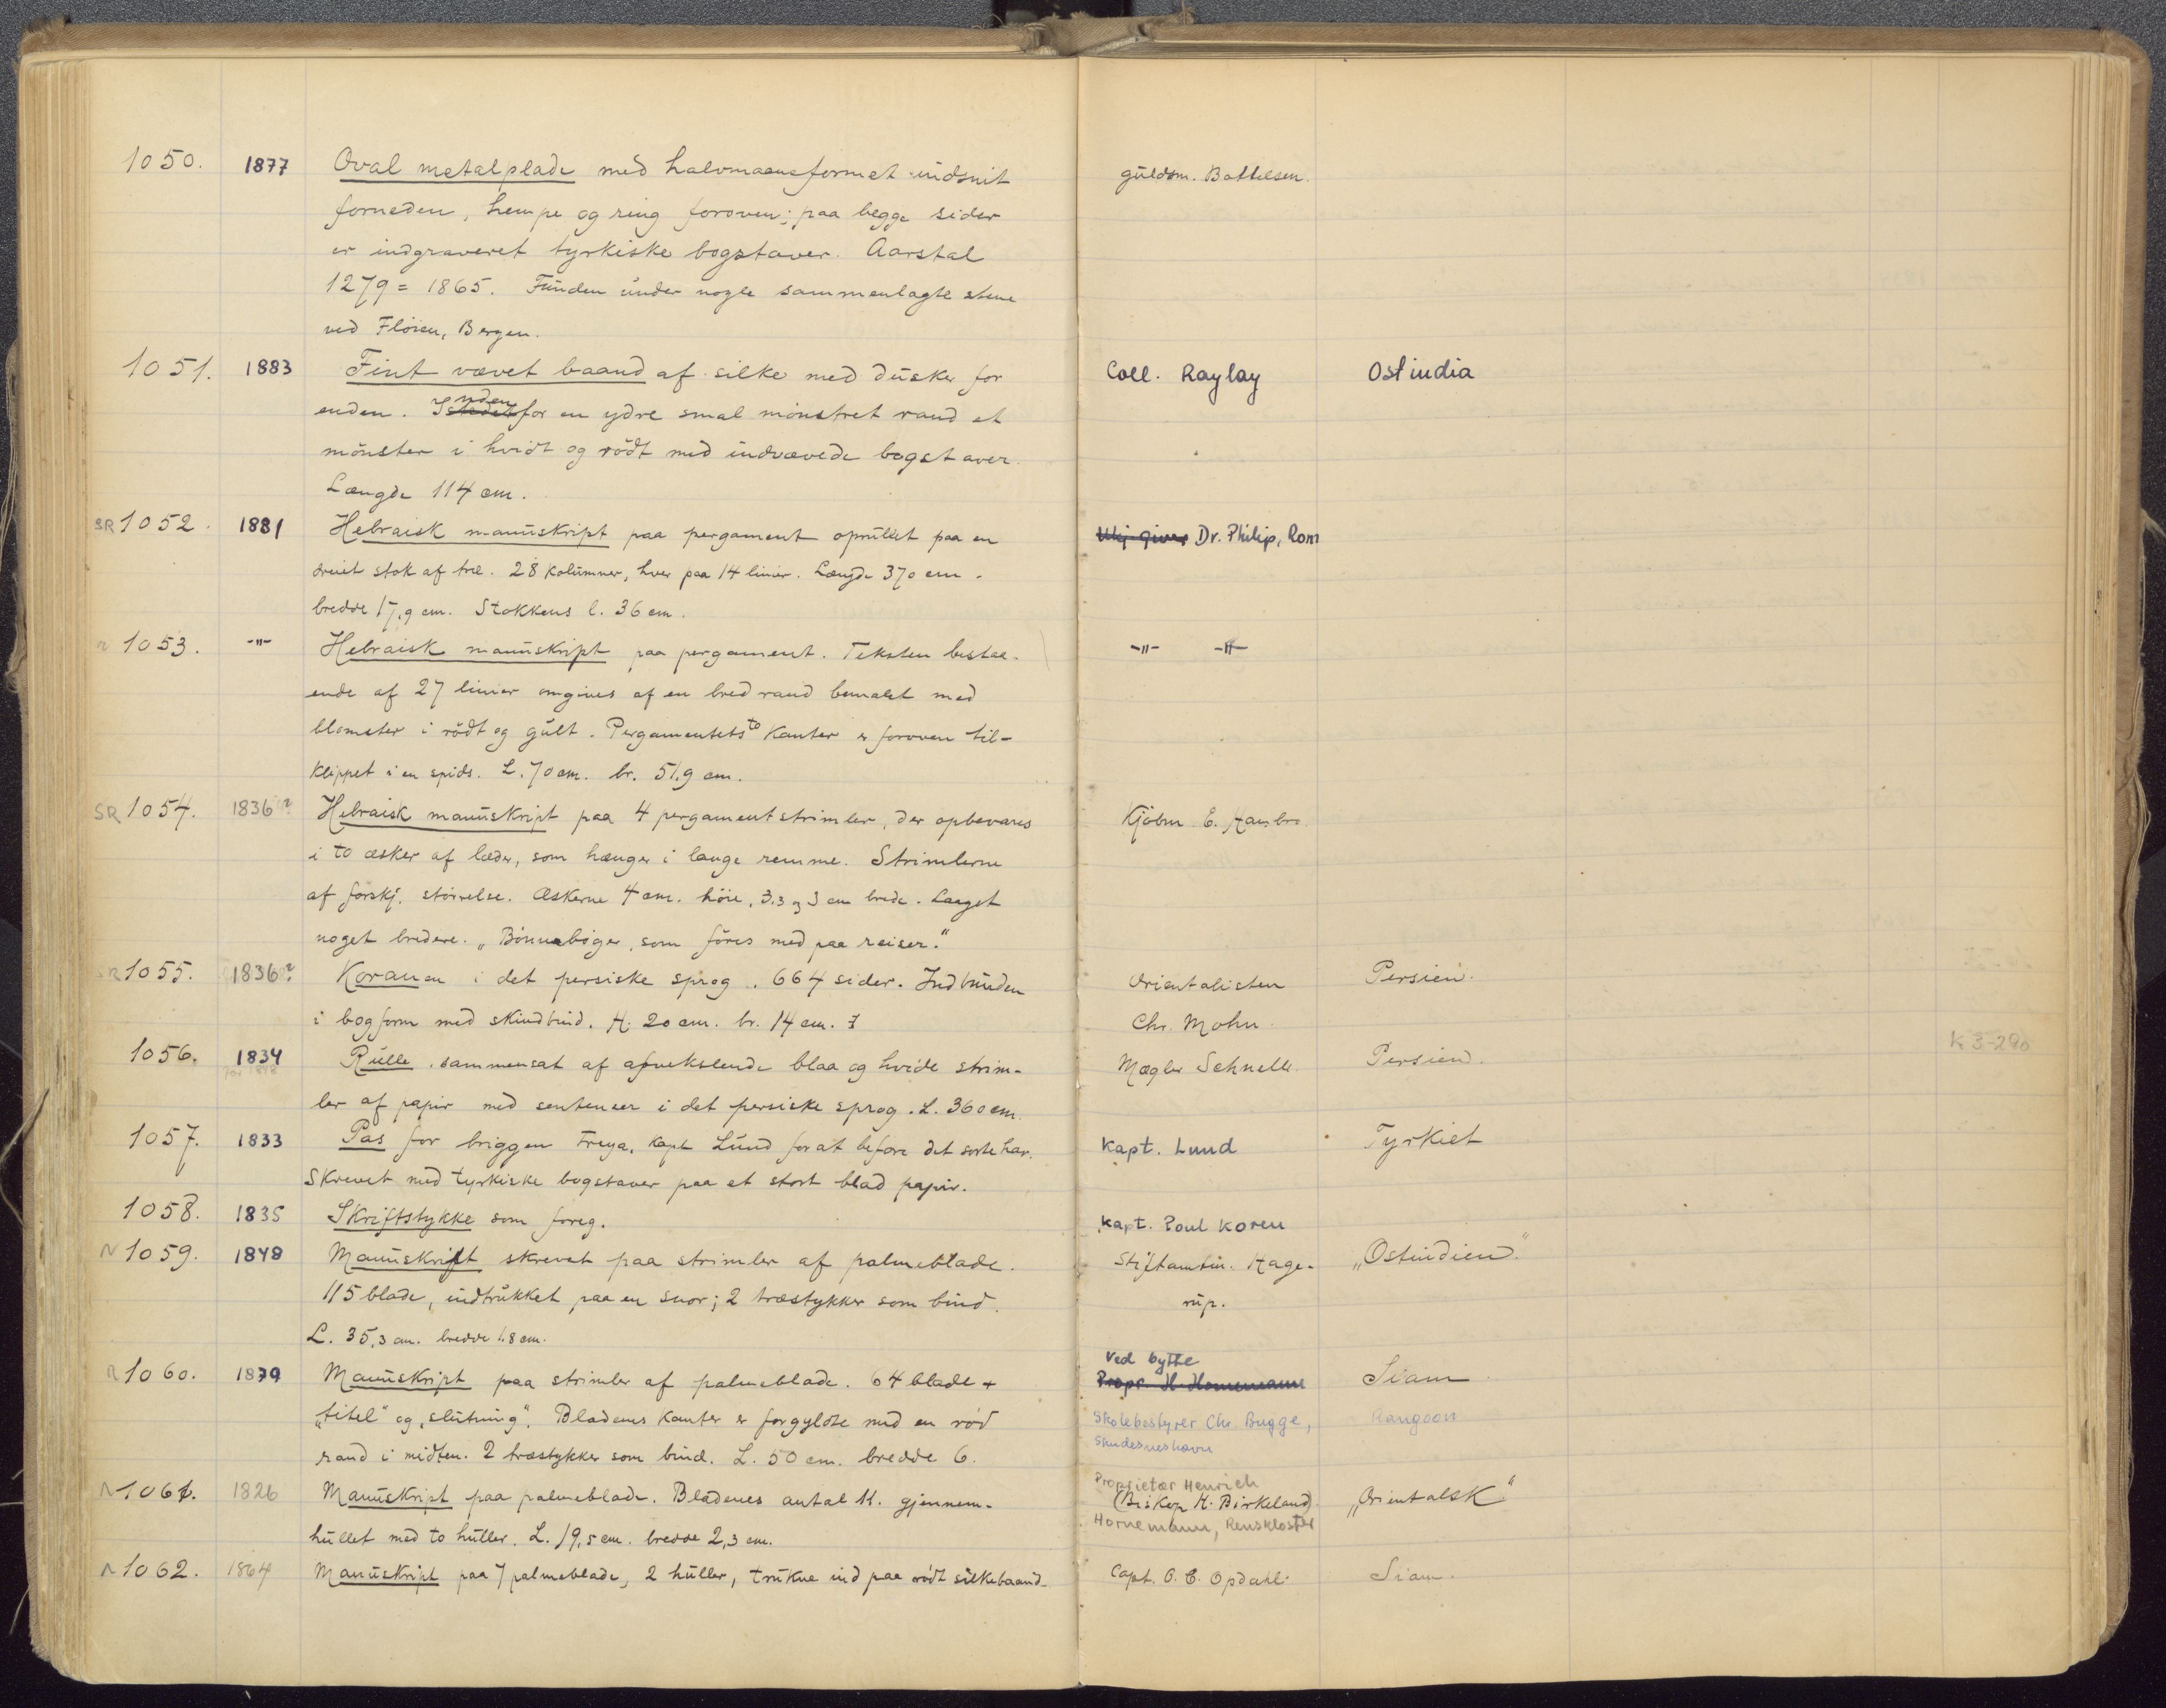 1050. 1877 Oval metalplade med halvmaaneformet indsnit guldsm. Bottelsen.
forneden, hempe og ring foroven; paa begge sider
er indgraveret tyrkiske bogstaver. Aarstal
1279 = 1865. Funden under nogle sammenlagte stene
ved Fløien, Bergen.
1051. 1883 Fint vævet baand af silke med dusker for Coll. Raylay Ostindia
enden. Inden for en ydre smal mønstret rand et
mønster i hvidt og rödt med indvævede bogstaver.
Længde 114 cm.
SR 1052. 1881 Hebraisk manuskript paa pergament oprullet paa en Ukj. giver Dr. Philip, Rom
dreiet stok af træ. 28 kolumner, hver paa 14 linier. Længde 370 cm.
bredde 17,9 cm. Stokkens l. 36 cm.
1053. -"- Hebraisk manuskript paa pergament. Teksten bestaa- -"- -"-
ende af 27 linier omgives af en bred rand bemalet med
blomster i rödt og gult. Pergamentets to kanter er foroven til-
klippet i en spids. L. 70 cm. br. 51,9 cm.
SR 1054. 1836? Hebraisk manuskript paa 4 pergamentstrimler, der opbevares Kjöbm E. Hambro.
i to æsker af læder, som hænger i lange remme. Strimlerne
af forskj. størrelse. Æskerne 4 cm. höie, 3,3 og 3 cm brede. Laaget
noget bredere. „Bönnebøger, som föres med paa reiser."
SR 1055. 1836? Koranen i det persiske sprog. 664 sider. Indbunden Orientalisten Persien.
i bogform med skindbind. H. 20 cm. br. 14 cm. Chr. Mohn.
1056. 1834 Rulle, sammensat af afvekslende blaa og hvide strim- Mægler Schnelle. Persien. K 3-290
ler af papir med sentenser i det persiske sprog. L. 360 cm.
1057. 1833 Pas for briggen Freya, kapt Lund for at befare det sorte hav. Kapt. Lund Tyrkiet
Skrevet med tyrkiske bogstaver paa et stort blad papir.
1058. 1835 Skriftstykke som foreg. Kapt. Poul Koren
N 1059. 1848 Manuskript skrevet paa strimler af palmeblade. Stiftamtm. Hage- „Ostindien."
115 blade, indtrukket paa en snor; 2 træstykker som bind. rup.
L. 35,3 cm. bredde 1.8 cm.
Ved bytte
1060. 1879 Manuskript paa strimler af palmeblade. 64 blade + Propr. H. Hornemann Siam
„titel" og „slutning". Bladenes kanter er forgyldte med en rød Skolebestyrer Chr. Bugge, Rangoon
rand i midten. 2 træstykker som bind. L. 50 cm. bredde 6. Skudesneshavn
Proprietær Henrich
N 1061. 1826 Manuskript paa palmeblade. Bladenes antal 11. gjennem- (Biskop H. Birkeland) „Orientalsk"
hullet med to huller. L. 19,5 cm. bredde 2,3 cm. Hornemann, Renskloster
N 1062. 1864 Manuskript paa 7 palmeblade, 2 huller, trukne ind paa rødt silkebaand. Capt. O. C. Opdahl. Siam.